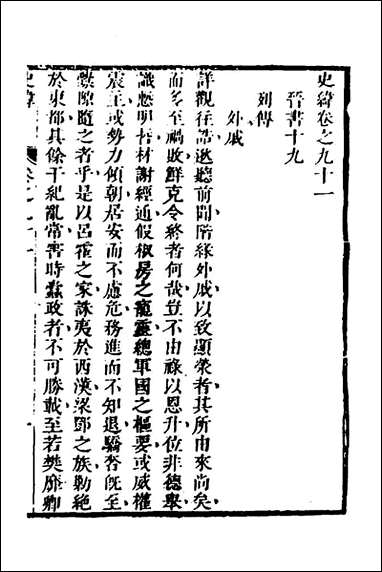 史緯卷之九十一
晉書十九
列傳
外戚
詳觀往誥逖聽前聞階緣外戚以致顯榮者其所由來尚矣
而多至禍敗鮮克令終者何哉豈不由祿以恩升位非德舉
識慙明悊材謝經通假椒房之寵靈總軍國之樞要或威權
震主或勢力傾朝居安而不慮危務進而不知退驕奢旣至
釁隙隨之者乎是以呂霍之家誅夷於西漢梁鄧之族勦絶
於東都其餘干紀亂常害時蠹政者不可勝載至若樊靡卿
史緯